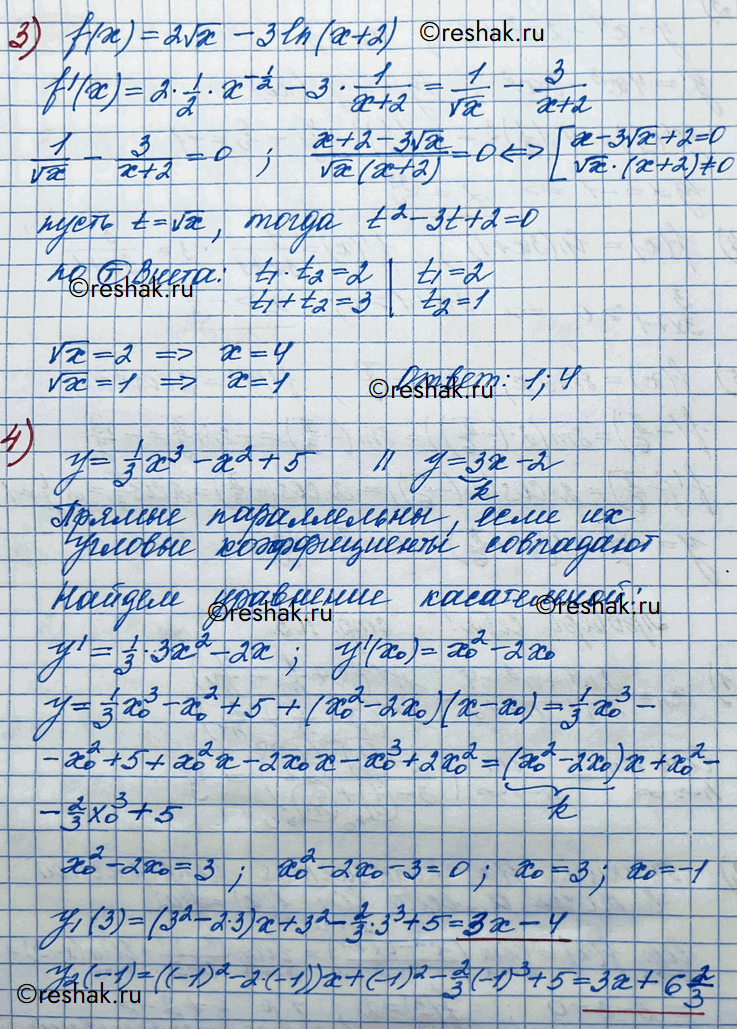 3) f(x) = 2√x - 3ln(x+2) ©reshak.ru
f'(x) = 2·1/2·x^(-1/2) - 3·1/(x+2) = 1/√x - 3/(x+2)
1/√x - 3/(x+2) = 0 ; (x+2-3√x)/(√x(x+2)) = 0 <=> [ x-3√x+2=0
√x·(x+2)≠0
пусть t=√x, тогда t²-3t+2=0
по Ⓣ Виета: t₁·t₂=2 | t₁=2
©reshak.ru t₁+t₂=3 | t₂=1
√x=2 => x=4
√x=1 => x=1 ©reshak.ru Ответ: 1; 4
4) y = 1/3x³ - x² + 5 || y = 3x-2
k
Прямые параллельны, если их
угловые коэффициенты совпадают
Найдем уравнение касательной:
©reshak.ru ©reshak.ru
y' = 1/3·3x² - 2x ; y'(x₀) = x₀² - 2x₀
y = 1/3x₀³ - x₀² + 5 + (x₀² - 2x₀)(x-x₀) = 1/3x₀³ -
- x₀² + 5 + x₀²x - 2x₀x - x₀³ + 2x₀² = (x₀² - 2x₀)x + x₀² -
k
- 2/3x₀³ + 5
x₀² - 2x₀ = 3 ; x₀² - 2x₀ - 3 = 0 ; x₀ = 3 ; x₀ = -1
y₁(3) = (3² - 2·3)x + 3² - 2/3·3³ + 5 = 3x - 4
y₂(-1) = ((-1)² - 2·(-1))x + (-1)² - 2/3(-1)³ + 5 = 3x + 6 2/3
©reshak.ru